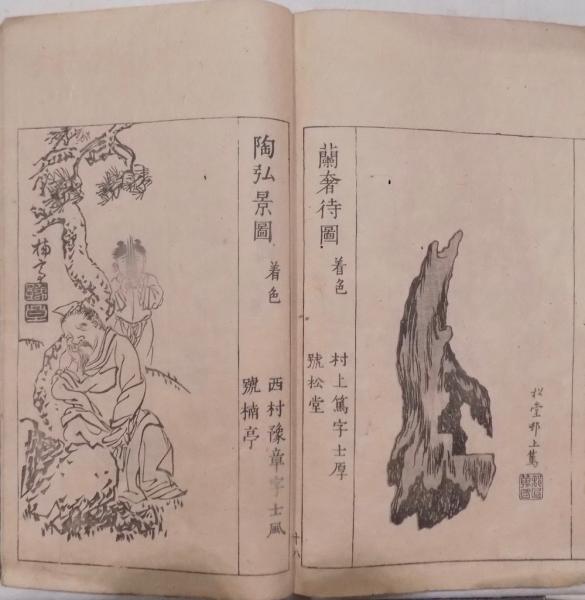 蘭奢待圖 着色
村上篤字士厚
號松堂
松堂邨上篤
陶弘景圖 着色
西村豫章字士風
號楠亭
楠亭
十八